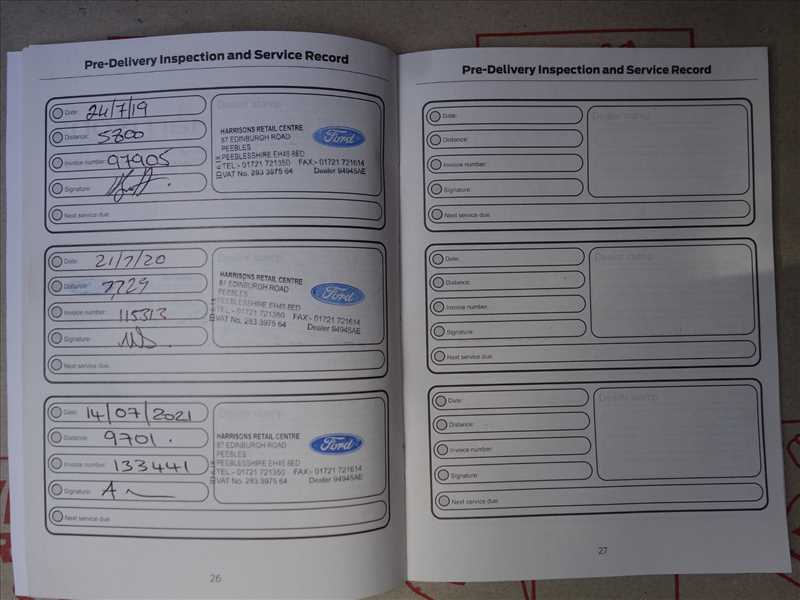 Pre-Delivery Inspection and Service Record
Date: 24/7/19
Distance: 5800
Invoice number: 97905
Signature:
Next service due
Dealer stamp
HARRISONS RETAIL CENTRE
87 EDINBURGH ROAD
PEEBLES
PEEBLESSHIRE EH45 8ED
TEL:- 01721 721350 FAX:- 01721 721614
VAT No. 283 3975 64 Dealer 94945AE
Ford
Date: 21/7/20
Distance: 7729
Invoice number: 115313
Signature:
Next service due
Dealer stamp
HARRISONS RETAIL CENTRE
87 EDINBURGH ROAD
PEEBLES
PEEBLESSHIRE EH45 8ED
TEL:- 01721 721350 FAX:- 01721 721614
VAT No. 283 3975 64 Dealer 94945AE
Ford
Date: 14/07/2021
Distance: 9701.
Invoice number: 133441
Signature:
Next service due
Dealer stamp
HARRISONS RETAIL CENTRE
87 EDINBURGH ROAD
PEEBLES
PEEBLESSHIRE EH45 8ED
TEL:- 01721 721350 FAX:- 01721 721614
VAT No. 283 3975 64 Dealer 94945AE
Ford
26
Pre-Delivery Inspection and Service Record
Date:
Distance:
Invoice number:
Signature:
Next service due
Dealer stamp
Date:
Distance:
Invoice number:
Signature:
Next service due
Dealer stamp
Date:
Distance:
Invoice number:
Signature:
Next service due
Dealer stamp
27